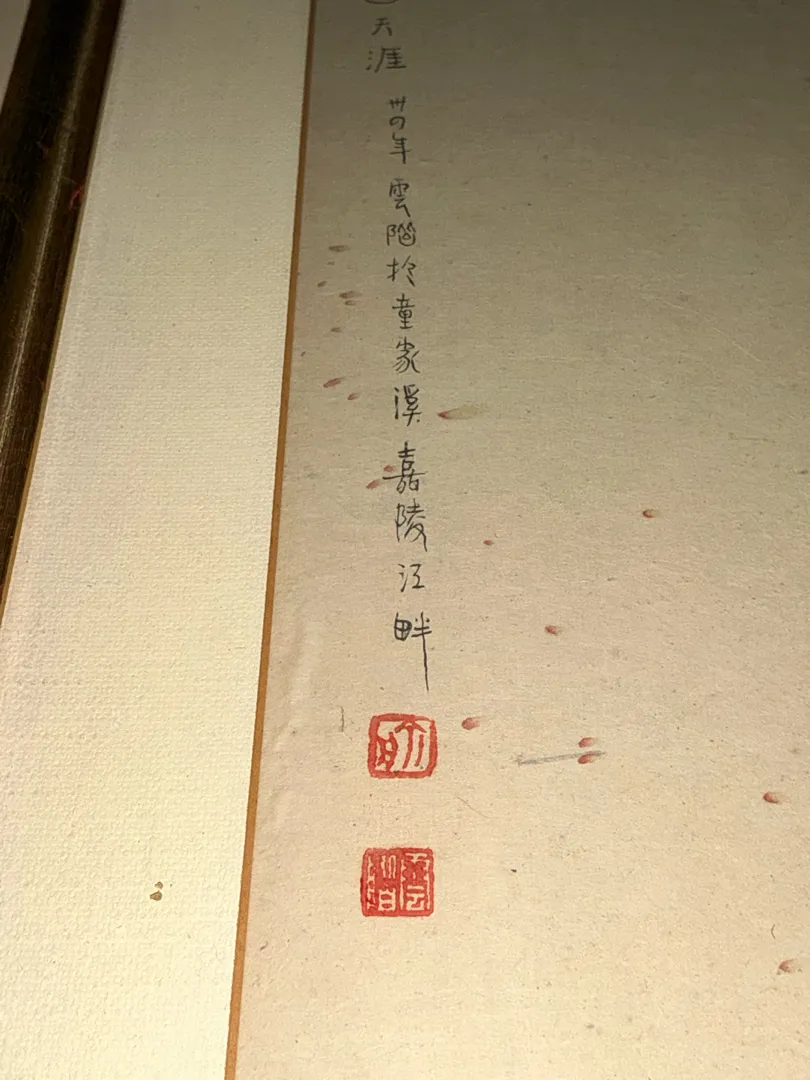 天涯 卅四年 雲階於童家溪 嘉陵江畔
雲階